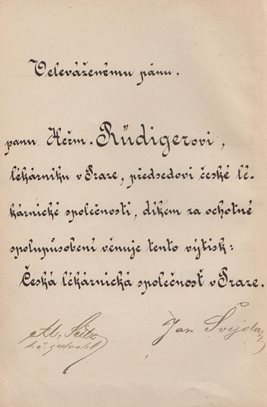 Veleváženému pánu.
panu Heřm. Rüdigerovi,
lékárníku v Praze, předsedovi české lé-
kárnické společnosti, díkem za ochotné
spolupůsobení věnuje tento výtisk:
Česká lékárnická společnosť v Praze.
Jan Švejda